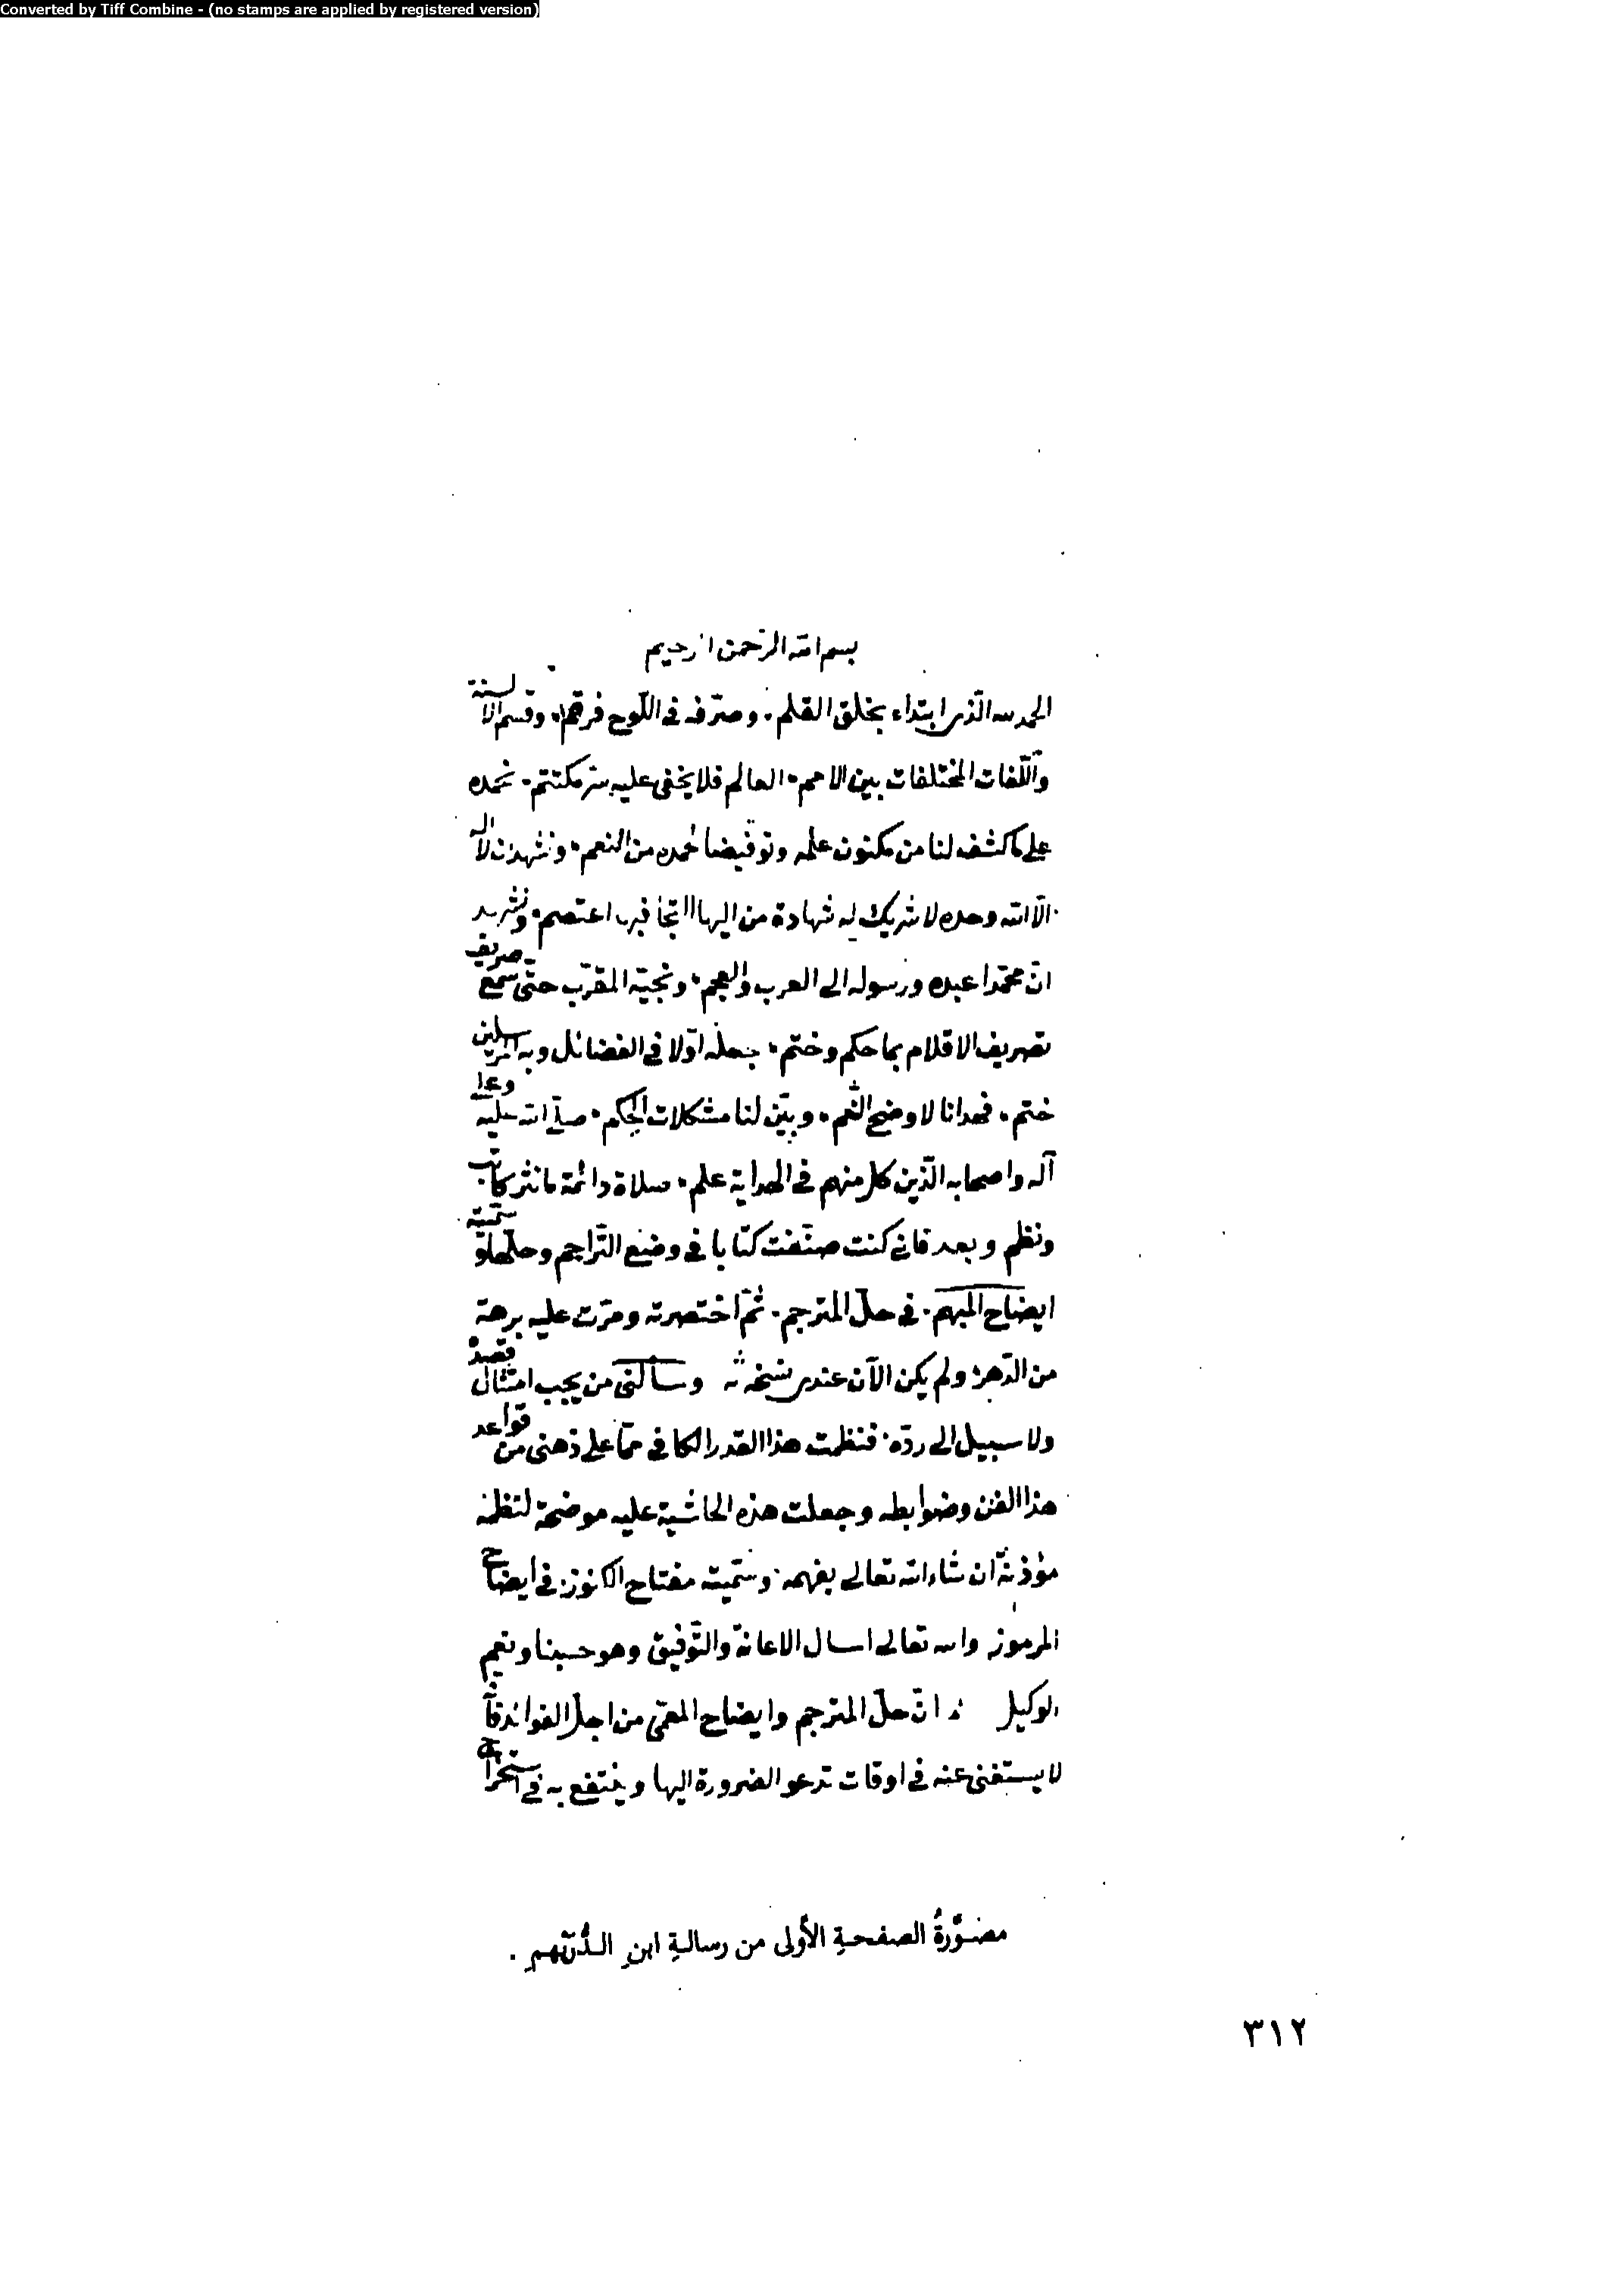 Converted by Tiff Combine - (no stamps are applied by registered version)
بسم الله الرحمن الرحيم
الحمد لله الذى ابتداء بخلق القلم . وصرّفه فى اللّوح فرقم . وقسم الالسنة
واللّغات المختلفات بين الامم . العالم فلا يخفى عليه سرّ مكتتم . نحمده
على ما كشف لنا من مكنون علمه من النعم . ونشهد ان لا اله
الّا الله وحده لا شريك له شهادة من اليها التجأ فبها اعتصم . ونشهد
انّ محمّدا عبده ورسوله الى العرب والعجم . ونجيّه المقرّب حتى سمع صريف
تصريف الاقلام بما حكم وختم . جعله اوّلا فى الفضائل وبه المرسلين
ختم . فهدانا لاوضح . وبيّن لنا مشكلات الحكم . صلّى الله عليه وعلى
آله واصحابه الّذين كل منهم فى الهداية علم . صلاة دائمة ما نثر كاتب
ونظم وبعد فانى كنت صنّفت كتابا فى وضع التّراجم وحلّها وسمّيته
ايضاح المبهم . فى حلّ المترجم . ثمّ اختصرته ومرّت عليه برهة
من الدّهر ولم يكن الآن عندى نسخة وسألنى من يجب امتثال قصده
ولا سبيل الى ردّه . فنظمت هذا القدر الكافى ممّا على ذهنى من قواعد
هذا الفن وضوابطه وجعلت هذه الحاشية عليه موضحة لنظمه
مؤذنة ان شاء الله تعالى بفهمه . وسمّيته مفتاح الكنوز . فى ايضاح
المرموز والله تعالى اسال الاعانة والتّوفيق وهو حسبنا ونعم
الوكيل انّ حلّ المترجم وايضاح المعمّى من اجلّ الفوائد فانّه
لا يستغنى عنه فى اوقات تدعو الضرورة اليها وينتفع به فى استخراج
مصَوَّرةُ الصفحةِ الأُولى من رسالةِ ابنِ الدُّرَيْهِمِ .
٣١٢